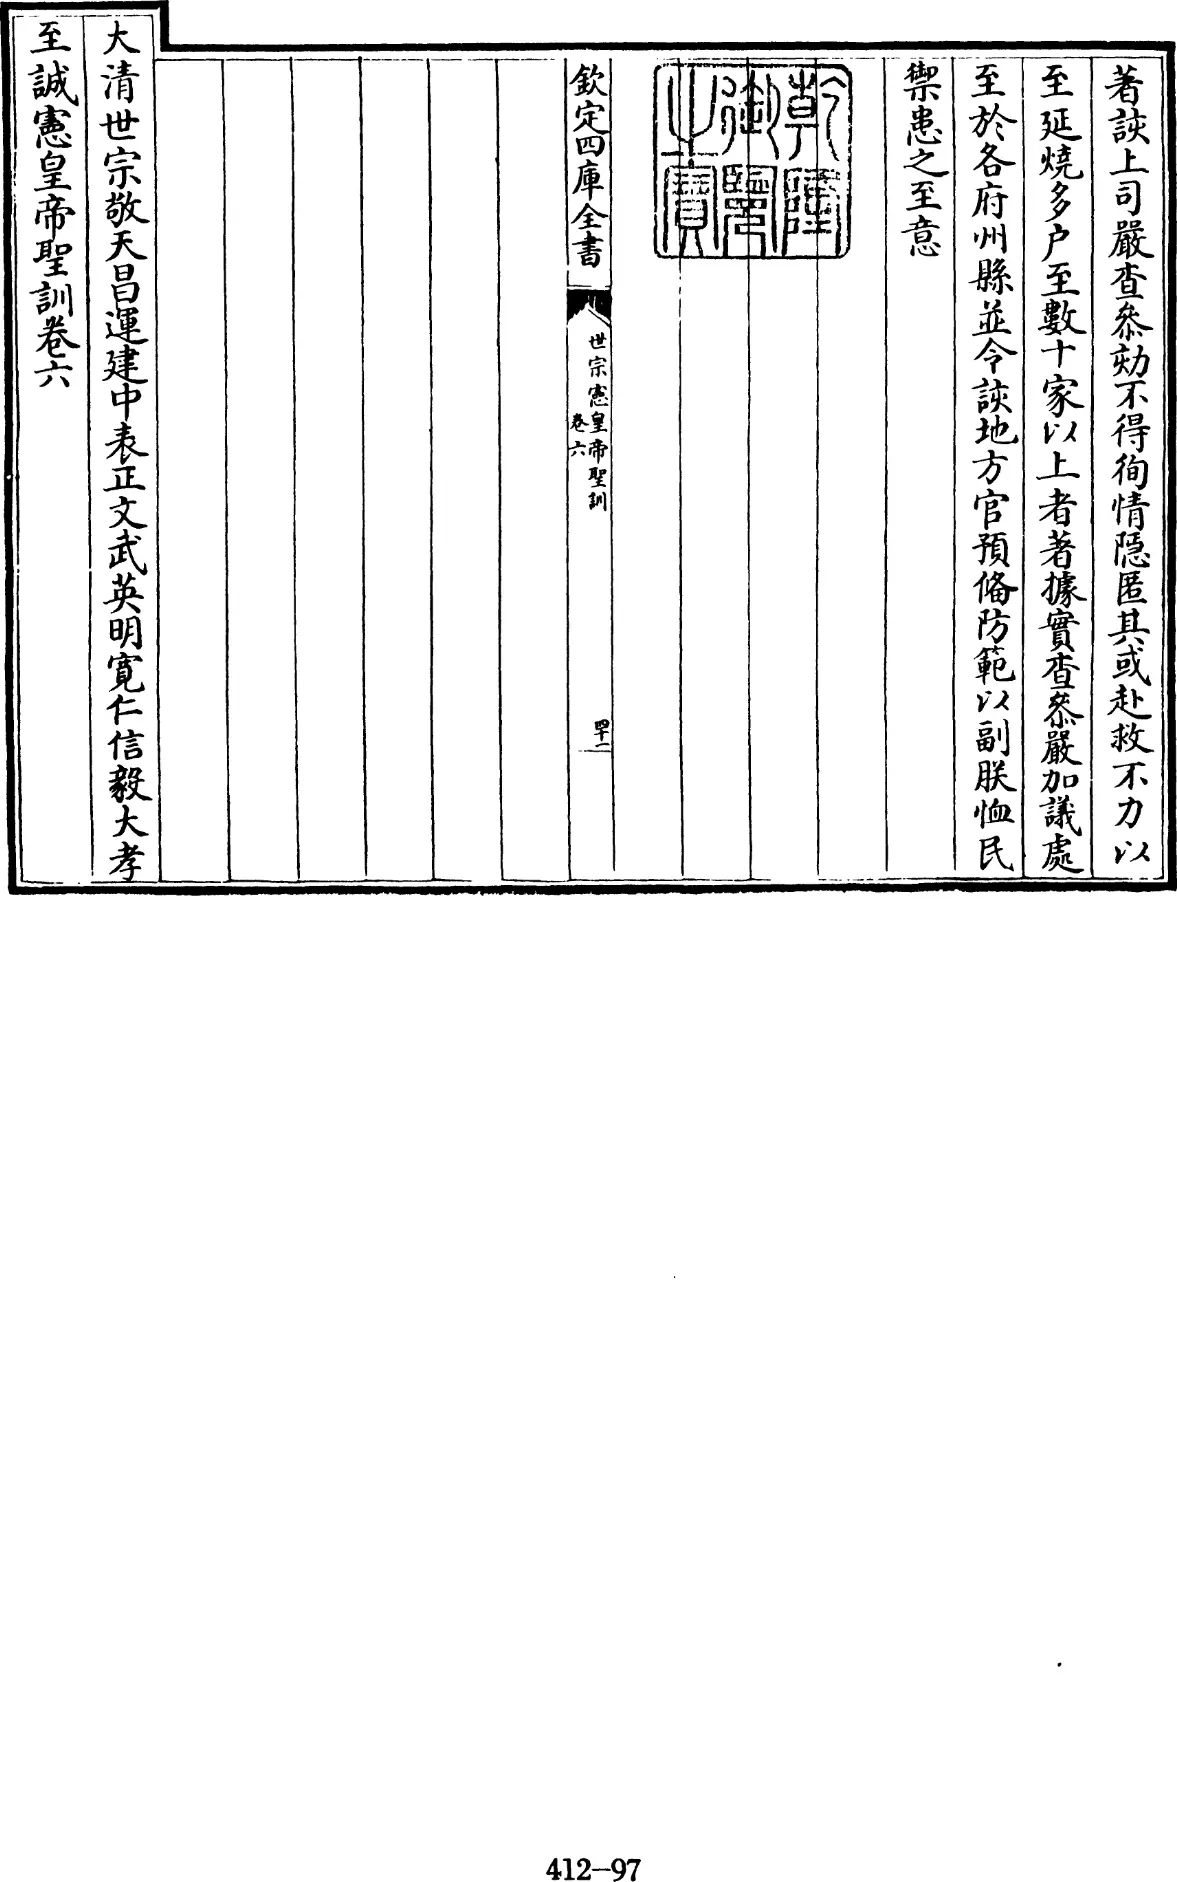 著該上司嚴查叅劾不得徇情隠匿其或赴救不力以
至延燒多户至數十家以上者著據實查叅嚴加議處
至於各府州縣並令該地方官預俻防範以副朕恤民
禦患之至意
乾隆
御覽
之寶
欽定四庫全書
世宗憲皇帝聖訓
卷六
四十二
大清世宗敬天昌運建中表正文武英明寛仁信毅大孝
至誠憲皇帝聖訓卷六
412-97